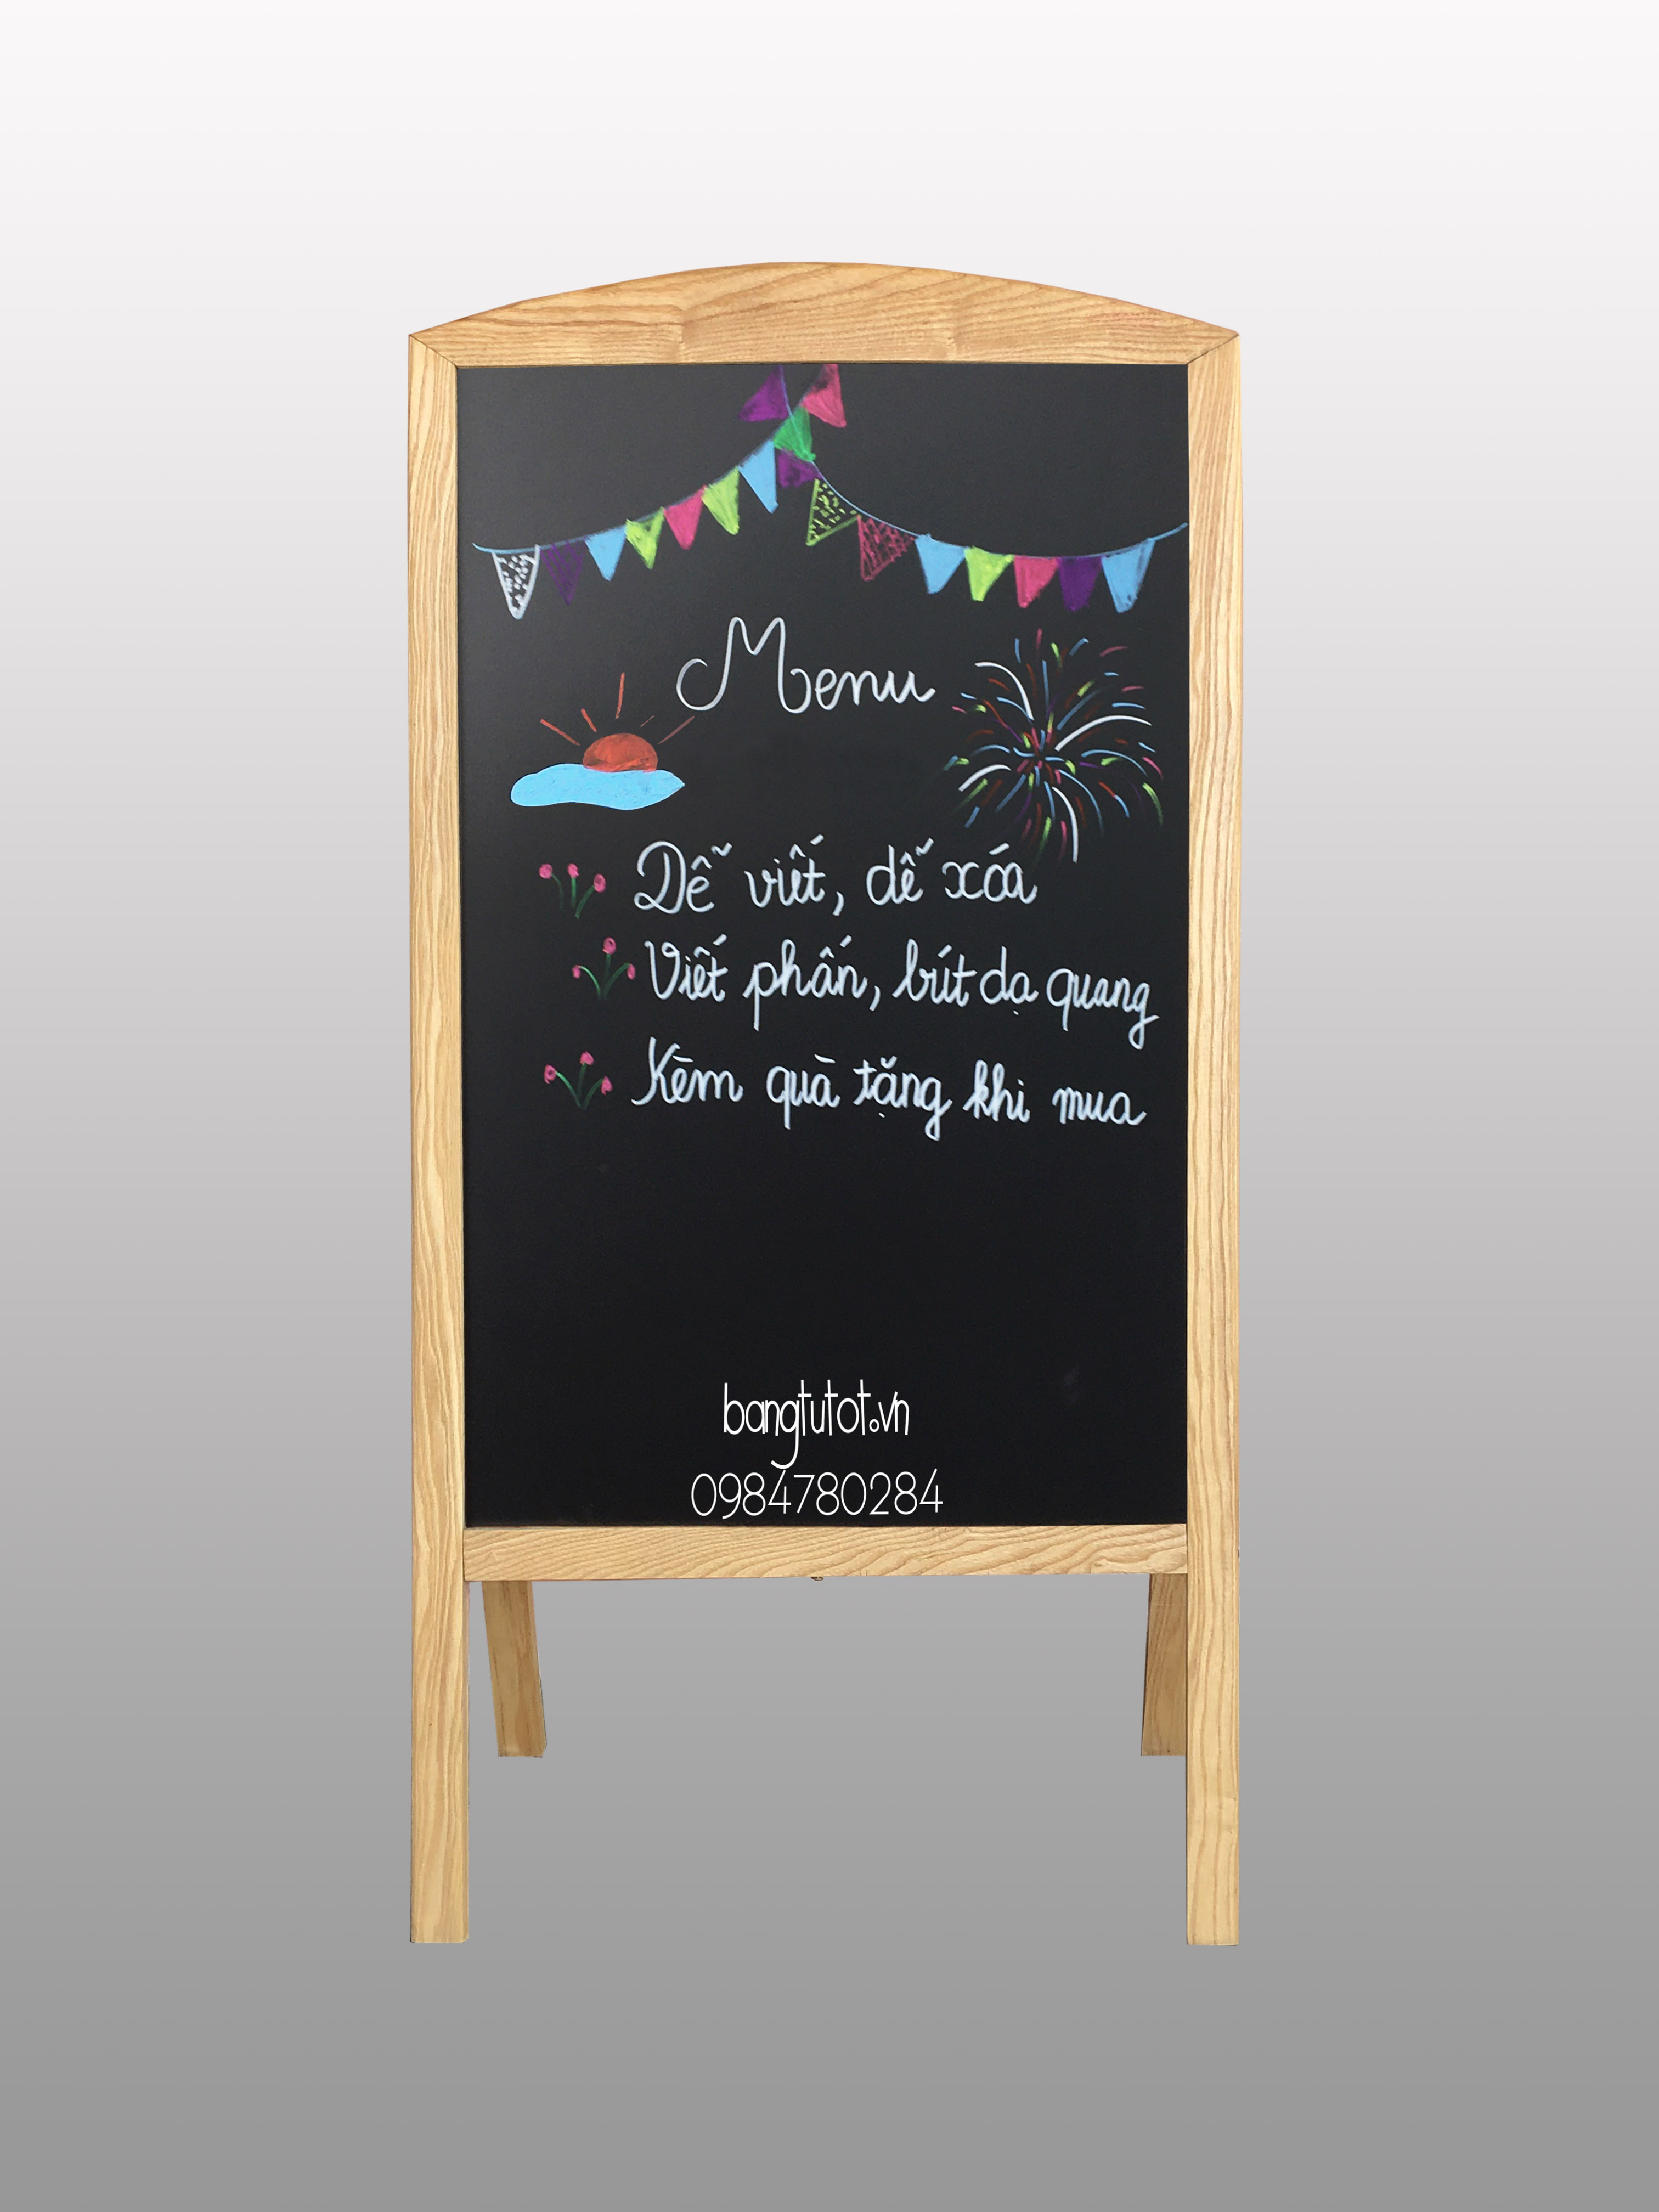 Menu
Dễ viết, dễ xóa
Viết phấn, bút dạ quang
Kèm quà tặng khi mua
bangtutot.vn
0984780284